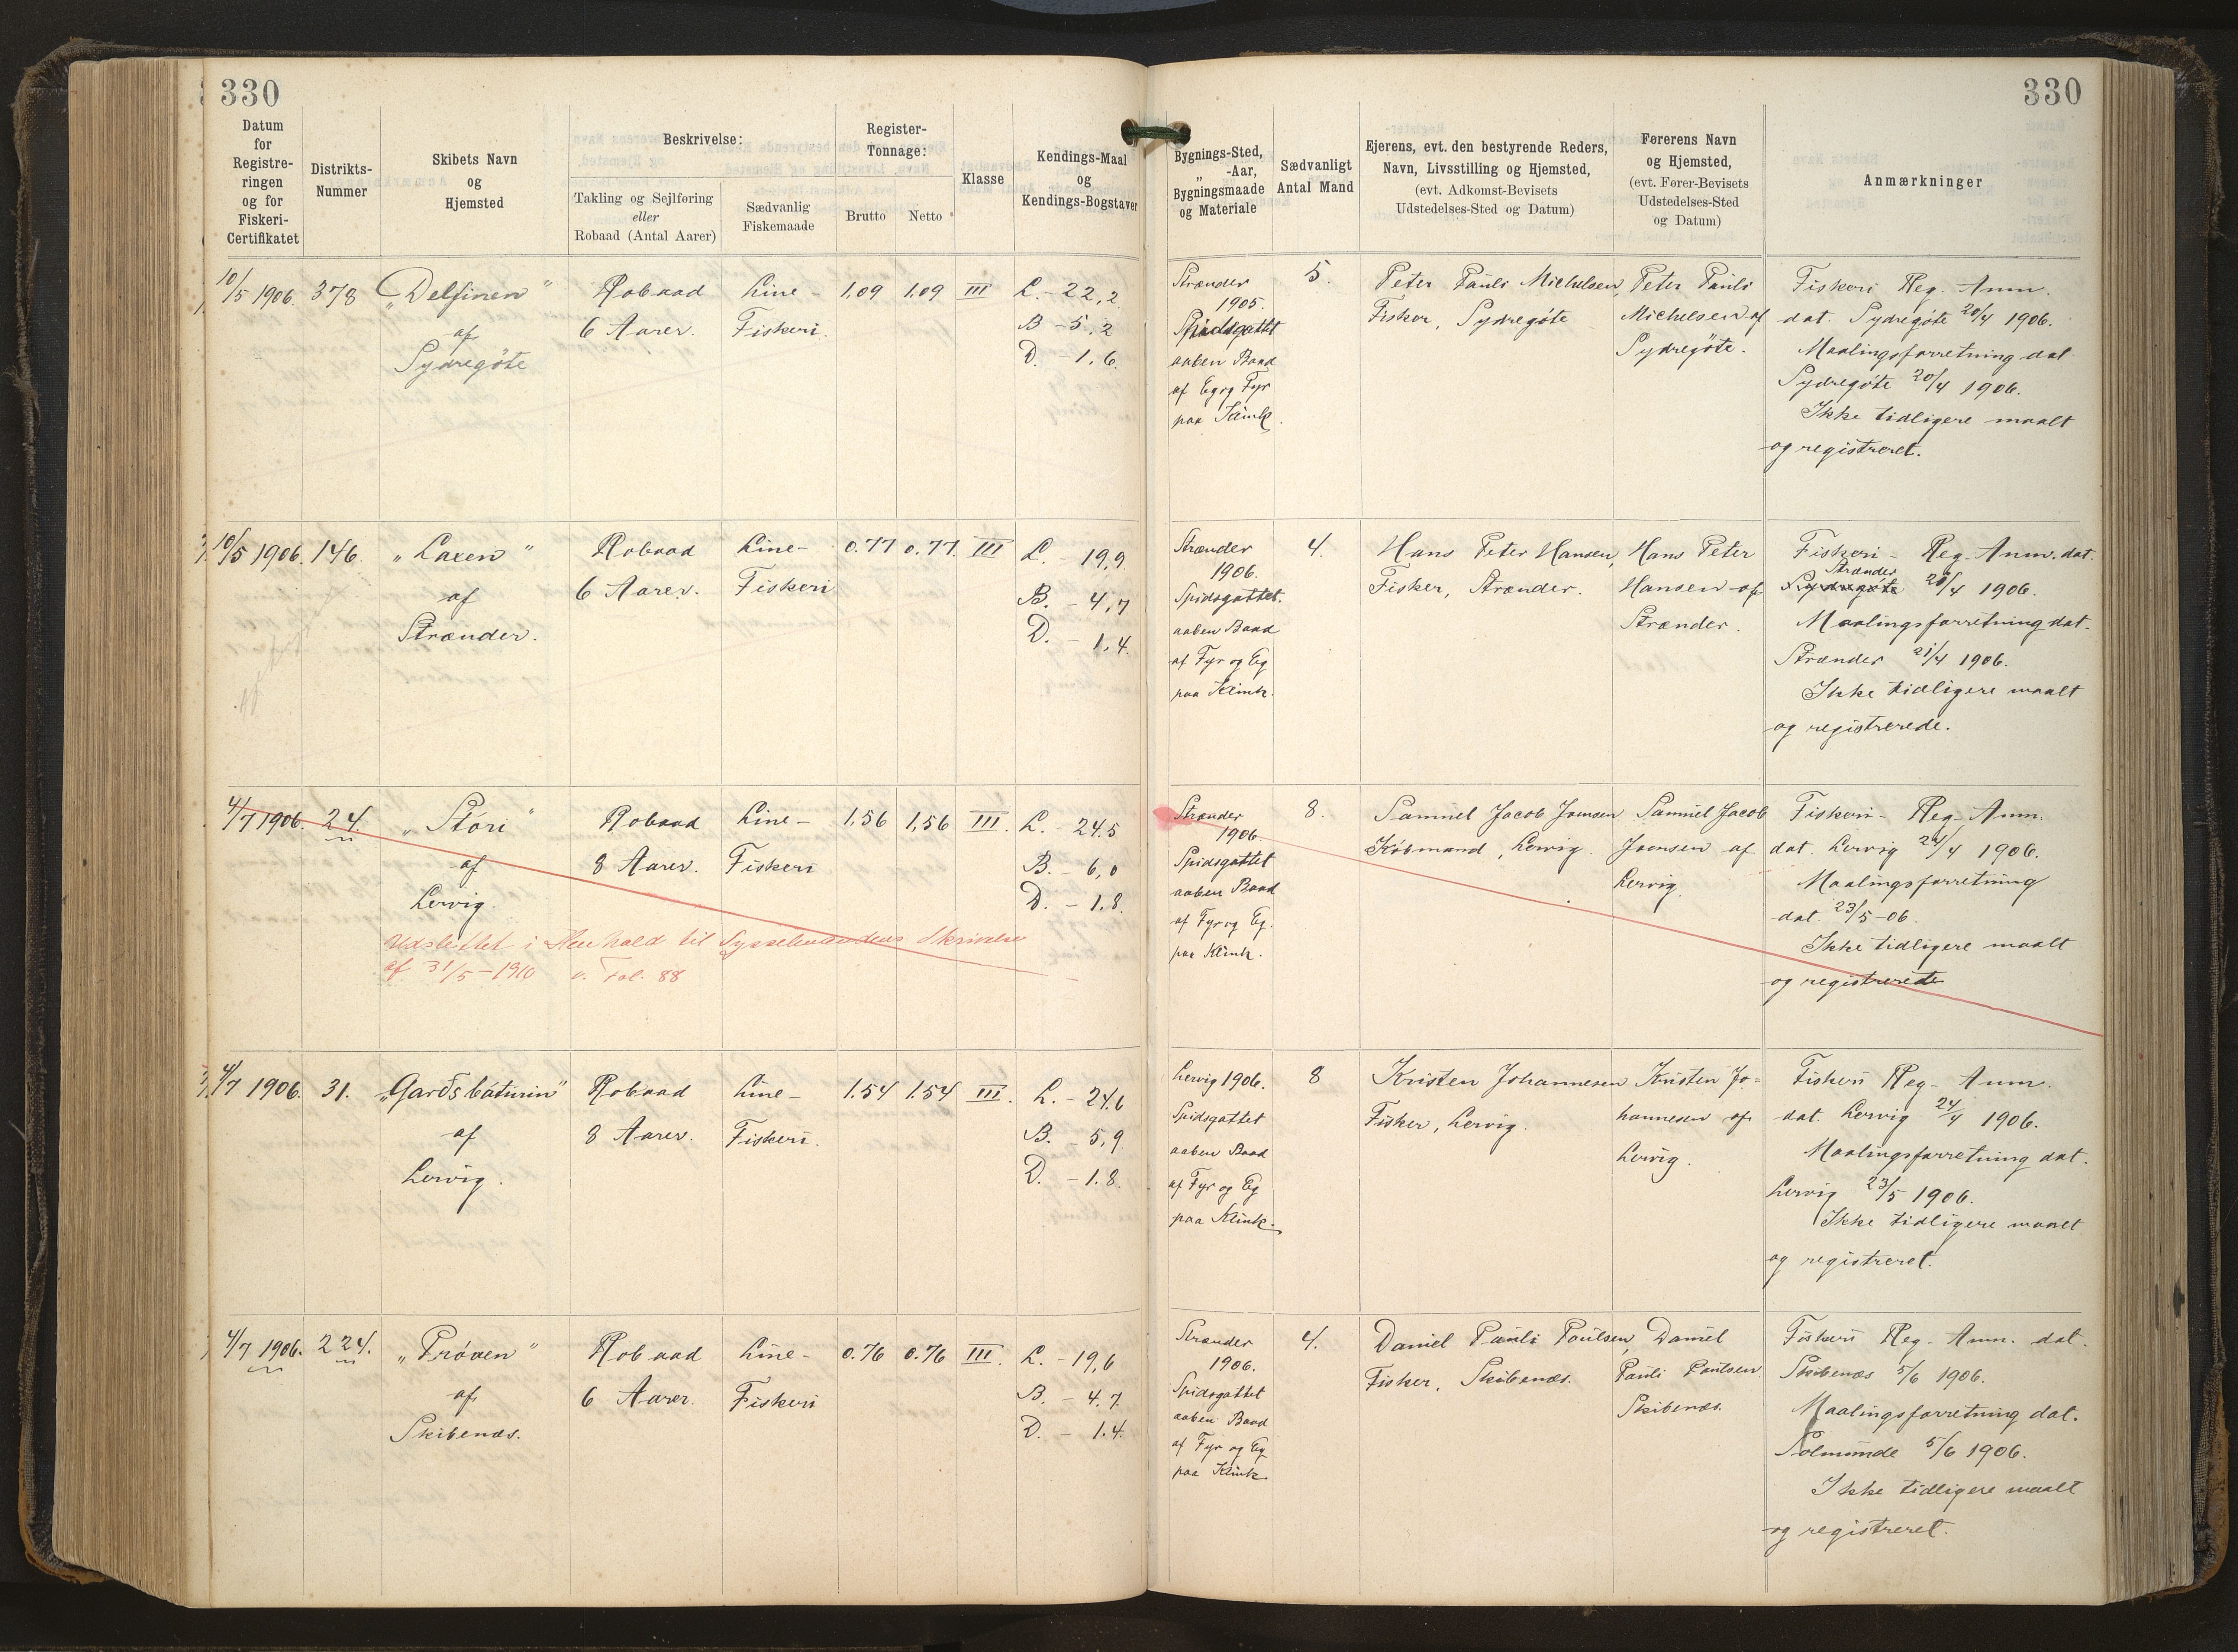 330
330
Datum
for
Registre-
ringen
og for
Fiskeri-
Certifikatet
Distrikts-
Nummer
Skibets Navn
og
Hjemsted
Beskrivelse:
Takling og Sejlføring
eller
Robaad (Antal Aarer)
Sædvanlig
Fiskemaade
Register-
Tonnage:
Brutto
Netto
Klasse
Kendings-Maal
og
Kendings-Bogstaver
Bygnings-Sted,
„ -Aar,
Bygningsmaade
og Materiale
Sædvanligt
Antal Mand
Ejerens, evt. den bestyrende Reders,
Navn, Livsstilling og Hjemsted,
(evt. Adkomst-Bevisets
Udstedelses-Sted og Datum)
Førerens Navn
og Hjemsted,
(evt. Fører-Bevisets
Udstedelses-Sted
og Datum)
Anmærkninger
10/5 1906.
378
„Delfinen“
af
Sydregöte
Robaad
6 Aarer.
Line-
Fiskeri.
1,09
1,09
III
L. - 22,2
B - 5,2
D. - 1,6.
Strænder
1905.
Spidsgattet
aaben Baad
af Eg og Fyr
paa Klink.
5.
Peter Pauli Michelsen,
Fisker, Sydregöte
Peter Pauli
Michelsen af
Sydregöte.
Fiskeri Reg. Anm.
dat. Sydregöte 20/4 1906.
Maalingsforretning dat
Sydregöte 20/4 1906.
Ikke tidligere maalt
og registreret.
10/5 1906.
146
„Laxen“
af
Strænder.
Robaad
6 Aarer.
Line-
Fiskeri
0.77
0.77.
III
L. - 19,9
B. - 4,7
D. - 1,4.
Strænder
1906.
Spidsgattet.
aaben Baad
af Fyr og Eg
paa Klink.
4.
Hans Peter Hansen,
Fisker, Strænder.
Hans Peter
Hansen af
Strænder.
Fiskeri- Reg-Anm. dat.
Strænder
Sydregöte 20/4 1906.
Maalingsforretning dat.
Strænder 21/4 1906.
Ikke tidligere maalt
og registrerede.
4/7 1906.
24.
„Stóri“
af
Lervig.
Robaad
8 Aarer.
Line-
Fiskeri
1,56
1,56
III.
L. - 24.5
B. - 6,0
D. - 1,8.
Udslettet i Henhold til Sysselmandens Skrivelse
af 31/5-1910 v. Fol. 88
Strænder
1906.
Spidsgattet
aaben Baad
af Fyr og Eg.
paa Klink.
8.
Samuel Jacob Joensen
Köbmand, Lervig.
Samuel Jacob
Joensen af
Lervig.
Fiskeri- Reg-Anm.
dat. Lervig 24/4 1906.
Maalingsforretning
dat. 23/5-06.
Ikke tidligere maalt
og registrerede
4/7 1906.
31.
„Garðsbáturin“
af
Lervig.
Robaad
8 Aarer.
Line-
Fiskeri.
1.54
1.54
III.
L. - 24.6
B. - 5,9
D. - 1.8.
Lervig 1906.
Spidsgattet
aaben Baad
af Fyr og Eg
paa Klink.
8
Kristen Johannesen
Fisker, Lervig.
Kristen Jo=
hannesen af
Lervig.
Fiskeri Reg- Anm.
dat. Lervig 24/4 1906.
Maalingsforretning dat.
Lervig 23/5 1906.
Ikke tidligere maalt
og registreret.
4/7 1906.
224.
„Pröven“
af
Skibenæs.
Robaad
6 Aarer.
Line-
Fiskeri
0.76
0.76
III.
L. - 19,6
B. - 4.7.
D. - 1.4.
Strænder
1906.
Spidsgattet
aaben Baad
af Fyr og Eg
paa Klink.
4.
Daniel Pauli Poulsen,
Fisker, Skibenæs.
Daniel
Pauli Poulsen
Skibenæs.
Fiskeri Reg- Anm. dat.
Skibenæs 5/6 1906.
Maalingsforretning dat.
Solmunde 5/6 1906.
Ikke tidligere maalt
og registreret.